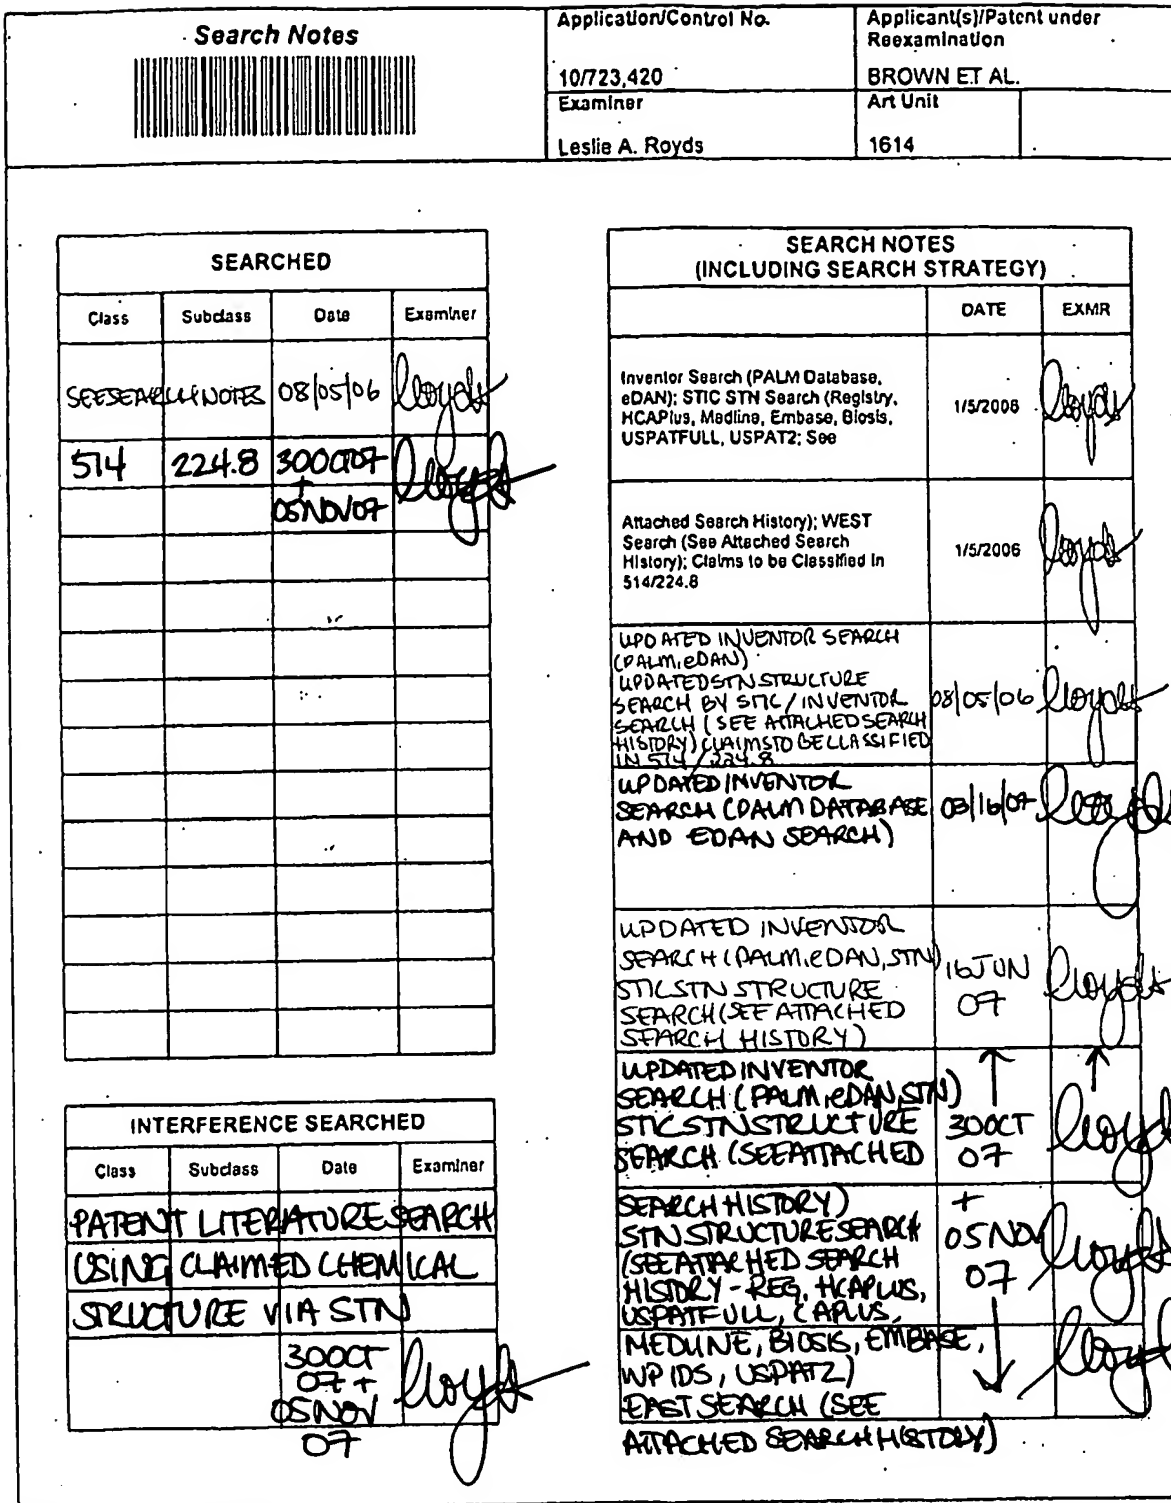 Search Notes
Application/Control No.
Applicant(s)/Patent under
Reexamination
10/723,420
BROWN ET AL.
Examiner
Art Unit
Leslie A. Royds
1614
SEARCHED
Class Subclass Date Examiner
SEE SEARCH NOTES 08/05/06
514 224.8 30OCT07
+
05NOV07
INTERFERENCE SEARCHED
Class Subclass Date Examiner
PATENT LITERATURE SEARCH
USING CLAIMED CHEMICAL
STRUCTURE VIA STN
30OCT
07 +
05NOV
07
SEARCH NOTES
(INCLUDING SEARCH STRATEGY)
DATE EXMR
Inventor Search (PALM Database,
eDAN); STIC STN Search (Registry,
HCAPlus, Medline, Embase, Biosis,
USPATFULL, USPAT2; See
1/5/2006
Attached Search History); WEST
Search (See Attached Search
History); Claims to be Classified in
514/224.8
1/5/2006
UPDATED INVENTOR SEARCH
(PALM, eDAN)
UPDATED STN STRUCTURE
SEARCH BY STIC / INVENTOR
SEARCH (SEE ATTACHED SEARCH
HISTORY) CLAIMS TO BE CLASSIFIED
IN 514/224.8
08/05/06
UPDATED INVENTOR
SEARCH (PALM DATABASE
AND EDAN SEARCH)
03/16/07
UPDATED INVENTOR
SEARCH (PALM, eDAN, STN)
STIC STN STRUCTURE
SEARCH (SEE ATTACHED
SEARCH HISTORY)
16JUN
07
UPDATED INVENTOR
SEARCH (PALM, eDAN, STN)
STIC STN STRUCTURE
SEARCH (SEE ATTACHED
30OCT
07
SEARCH HISTORY)
STN STRUCTURE SEARCH
(SEE ATTACHED SEARCH
HISTORY - REG, HCAPLUS,
USPATFULL, CAPLUS,
+
05NOV
07
MEDLINE, BIOSIS, EMBASE,
WPIDS, USPAT2)
EAST SEARCH (SEE
ATTACHED SEARCH HISTORY)